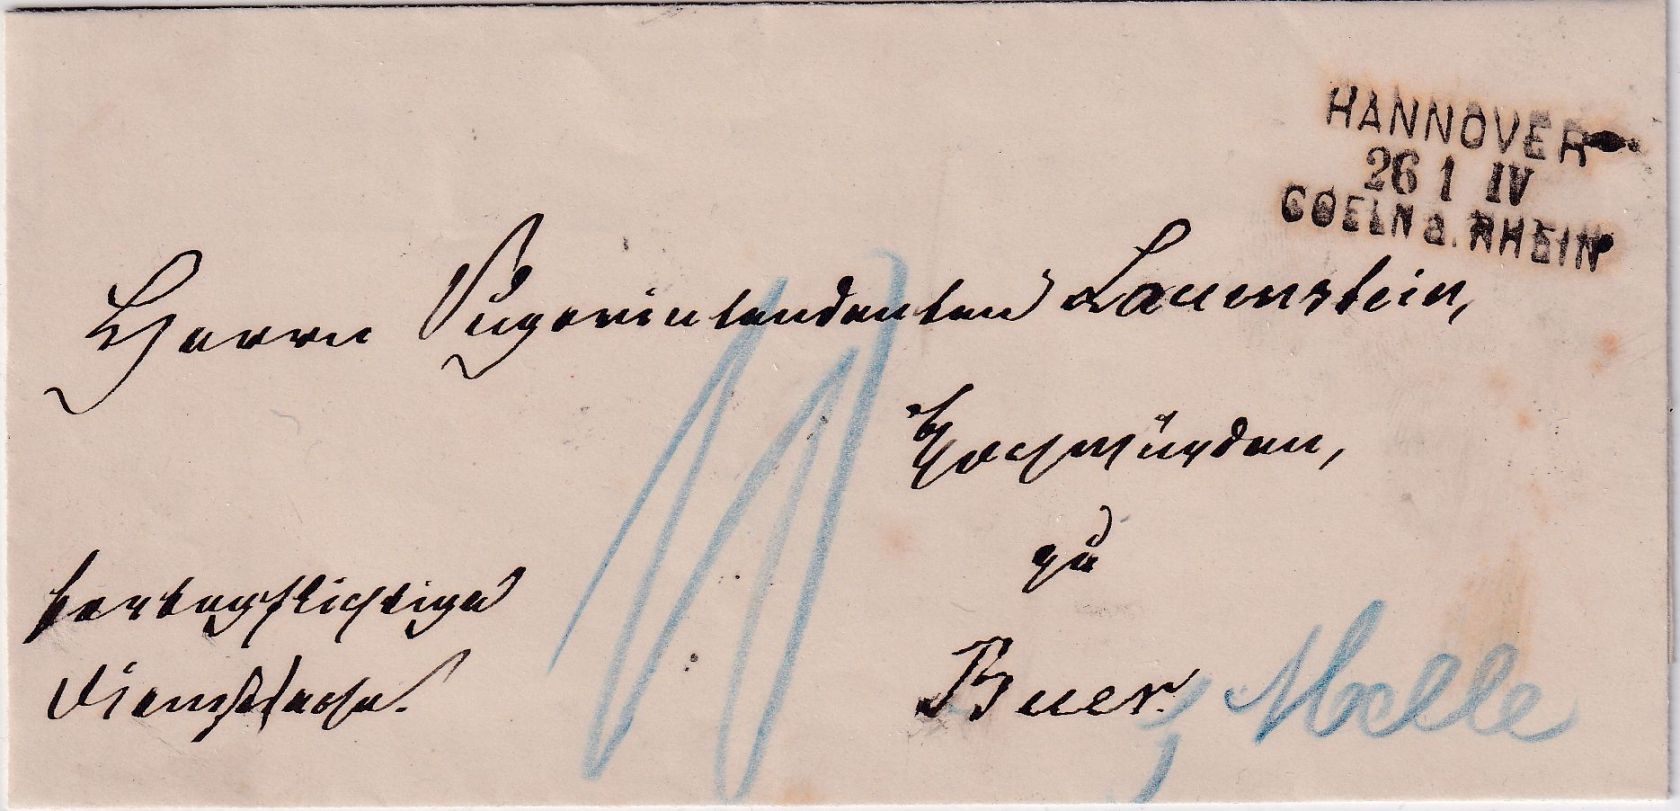 HANNOVER
26 1 IV
COELN a. RHEIN
Herrn Superintendenten Lauenstein,
Hochwürden,
zu
Buer.
Melle
portopflichtige
Dienstsache.